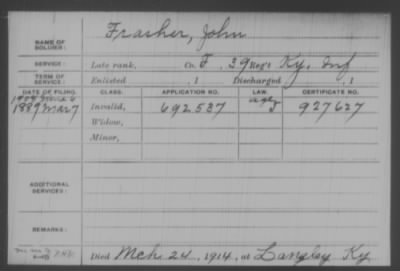 NAME OF SOLDIER: Frasher, John
SERVICE: Late rank, Co. F, 39 Reg't Ky. Inf
TERM OF SERVICE: Enlisted , 1 Discharged , 1
DATE OF FILING. CLASS. APPLICATION NO. LAW. CERTIFICATE NO.
1889 Mar 7 Invalid, 692537 J 927627
Widow,
Minor,
ADDITIONAL SERVICES:
REMARKS:
Died Mch 24, 1914, at Langley Ky